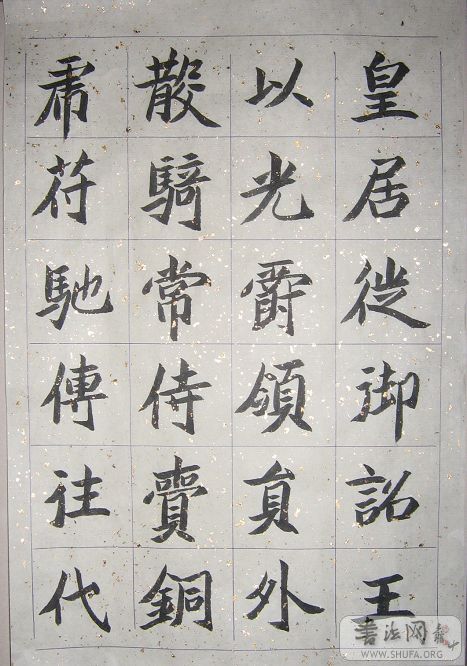 皇居徙御詔王
以光爵領貟外
散騎常侍賷銅
虎符馳傳往代
书法网
WWW.SHUFA.ORG